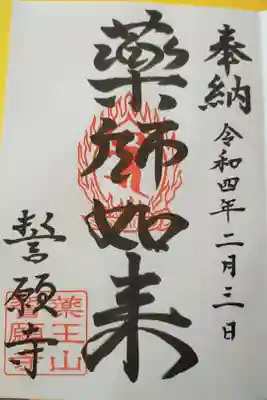 奉納
令和四年二月三日
薬師如来
誓願寺
薬王山
誓願寺